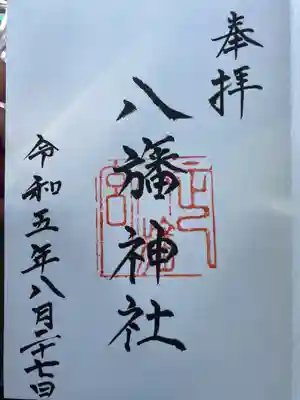 奉拝
八旛神社
令和五年八月二十七日